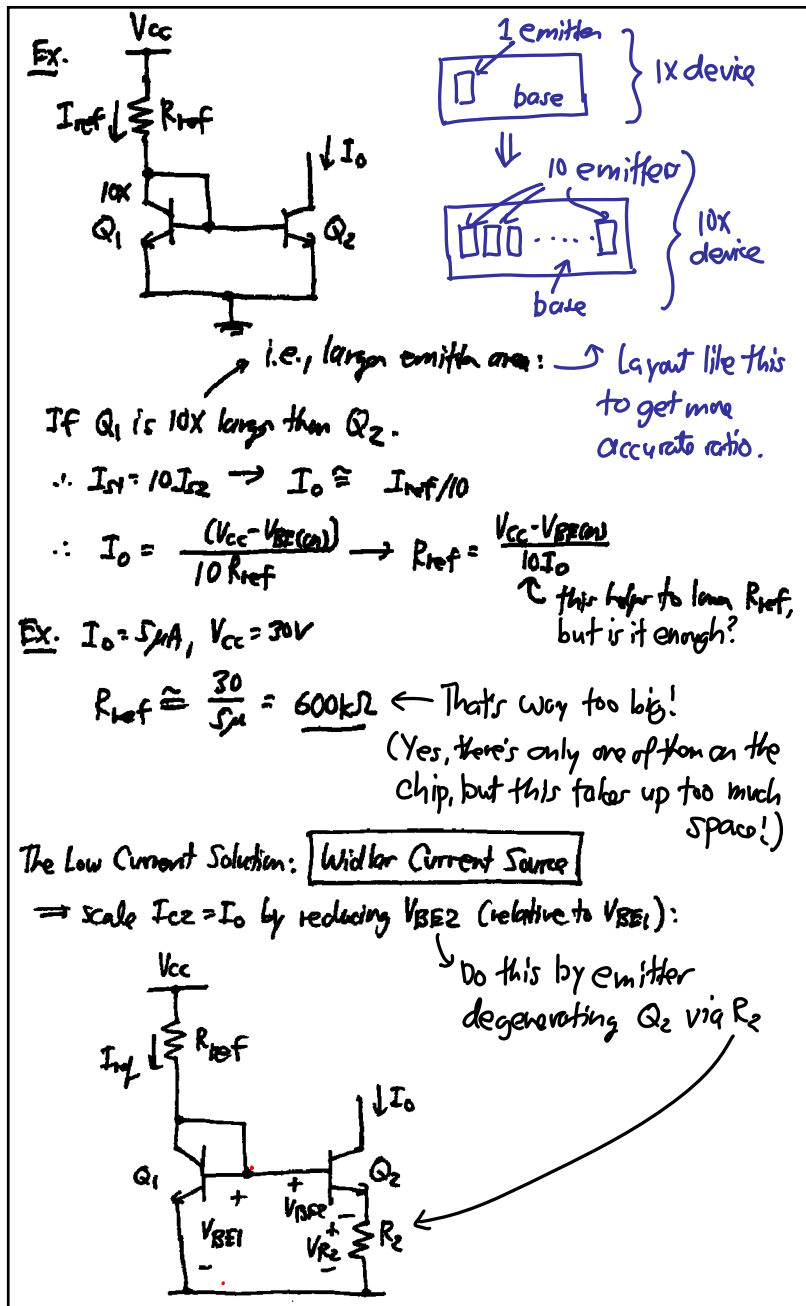 Ex.
Vcc
Iref
Rref
I0
10X
Q1
Q2
1 emitter
base
1X device
⇓
10 emitter
.....
base
10X
device
i.e., larger emitter area:
Layout like this
to get more
accurate ratio.
If Q1 is 10X larger than Q2.
∴ IS1 = 10IS2 → I0 ≅ Iref/10
∴ I0 = (Vcc-VBE(on))/10Rref → Rref = Vcc-VBE(on)/10I0
this helps to lower Rref,
but is it enough?
Ex. I0=5μA, Vcc=30V
Rref ≅ 30/5μ = 600kΩ ← That's way too big!
(Yes, there's only one of them on the
chip, but this takes up too much
space!)
The Low Current Solution: Widlar Current Source
⇒ scale IC2=I0 by reducing VBE2 (relative to VBE1):
Do this by emitter
degenerating Q2 via R2
Vcc
Iref
Rref
I0
Q1
Q2
+
VBE1
-
+
VBE2
-
+
VR2
-
R2